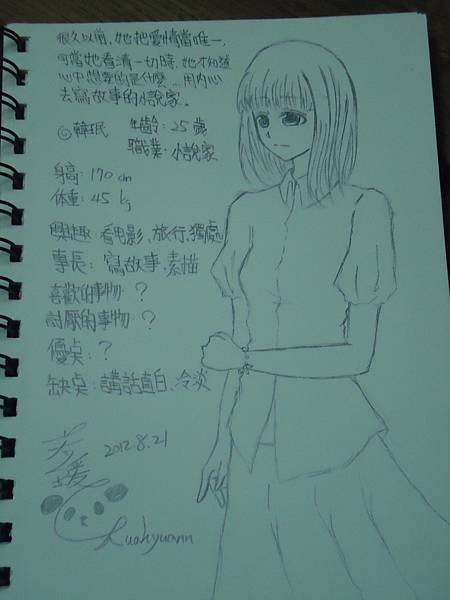 很久以前，她把愛情當唯一，
可當她看清一切時，她才知道
心中想要的是什麼...用內心
去寫故事的小說家。
◎韓珉 年齡：25歲
職業：小說家
身高：170 cm
体重：45 kg
興趣：看电影、旅行、獨處
專長：寫故事、素描
喜歡的事物：？
討厭的事物：？
優点：？
缺点：講話直白、冷淡
2012.8.21